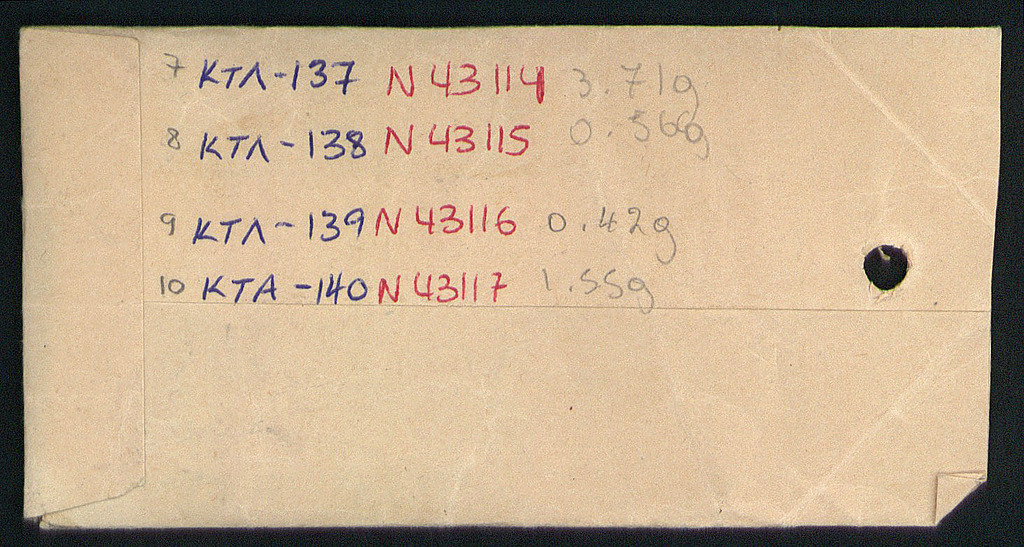 7 KTΛ-137 N 43114 3.71g
8 KTΛ-138 N 43115 0.566g
9 KTΛ-139 N 43116 0.42g
10 KTA-140 N 43117 1.55g